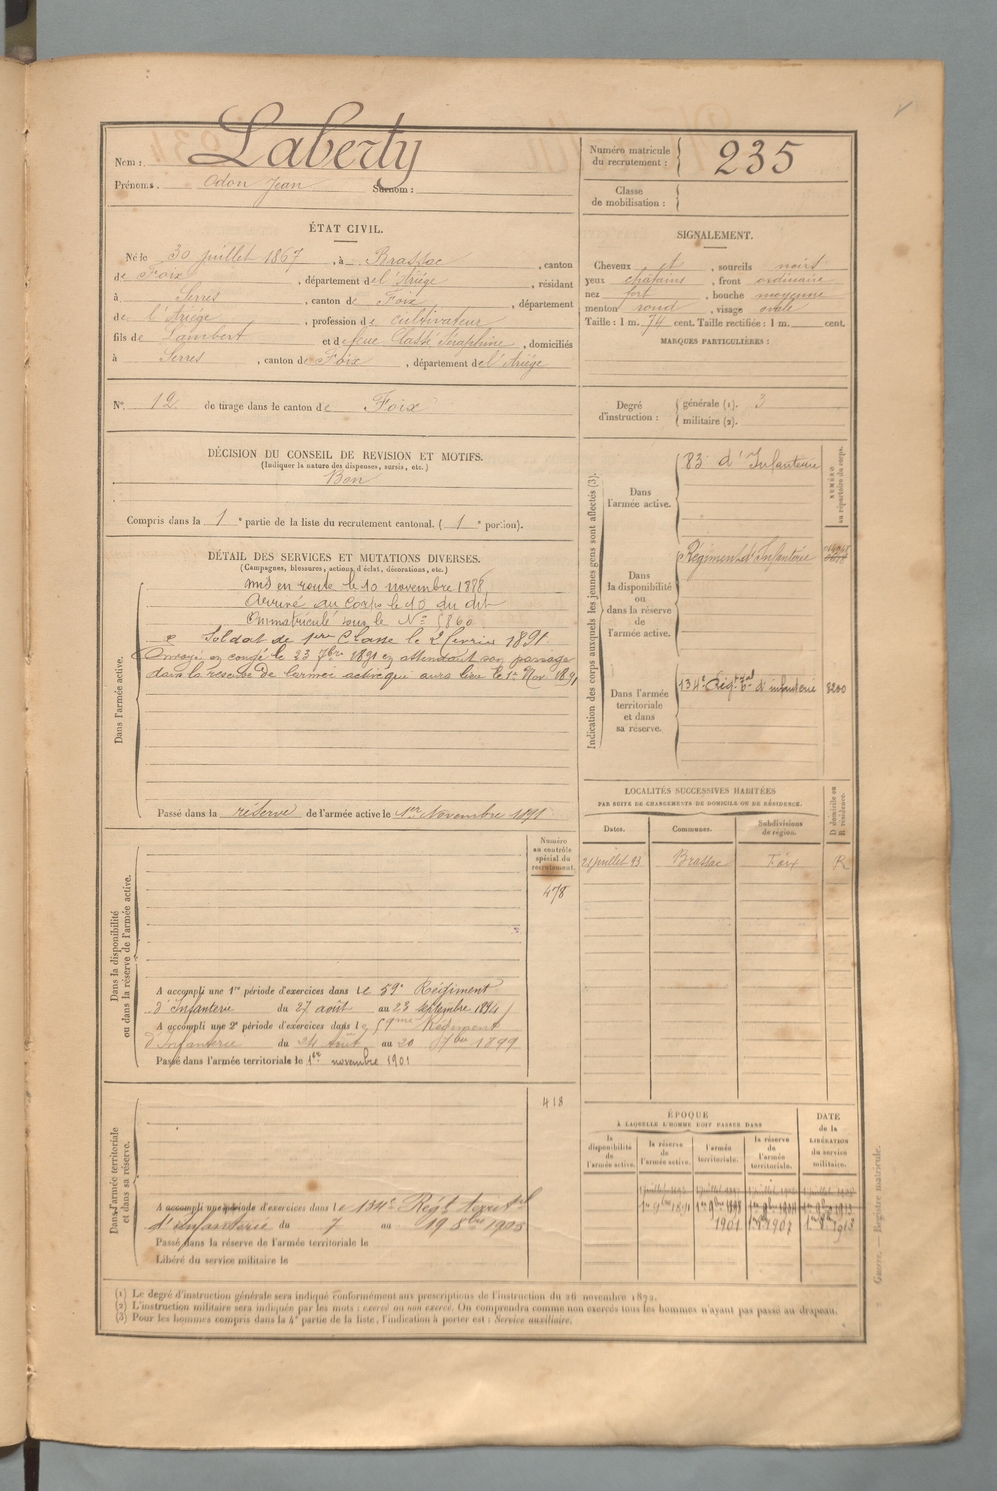 Nom : Laberty
Prénoms. Odon Jean Surnom :
Numéro matricule
du recrutement : 235
Classe
de mobilisation :
ÉTAT CIVIL.
Né le 30 juillet 1867, à Brassac, canton
de Foix, département de l'Ariége, résidant
à Serres, canton de Foix, département
de l'Ariége, profession de cultivateur
fils de Lambert et de feue Cassé Séraphine, domiciliés
à Serres, canton de Foix, département de l'Ariége
SIGNALEMENT.
Cheveux et, sourcils noirs
yeux châtains, front ordinaire
nez fort, bouche moyenne
menton rond, visage ovale
Taille : 1 m. 74 cent. Taille rectifiée : 1 m. cent.
MARQUES PARTICULIÈRES :
N° 12 de tirage dans le canton de Foix
Degré
d'instruction :
générale (1). 3
militaire (2).
DÉCISION DU CONSEIL DE REVISION ET MOTIFS.
(Indiquer la nature des dispenses, sursis, etc.)
Bon
Compris dans la 1e partie de la liste du recrutement cantonal. (1e portion).
DÉTAIL DES SERVICES ET MUTATIONS DIVERSES.
(Campagnes, blessures, actions d'éclat, décorations, etc.)
Dans l'armée active.
mis en route le 10 novembre 1888
Arrivé au Corps le 10 du dit
Immatriculé sous le N° 5860
Soldat de 1ère Classe le 2 février 1891.
Envoyé en congé le 23 7bre 1891 en attendant son passage
dans la réserve de l'armée active qui aura lieu le 1er Nov. 1891
Passé dans la réserve de l'armée active le 1er Novembre 1891
Indication des corps auxquels les jeunes gens sont affectés (3).
Dans
l'armée active.
83e d'Infanterie
NUMÉRO
au répertoire du corps.
Dans
la disponibilité
ou
dans la réserve
de
l'armée active.
Régiment d'Infanterie
Dans l'armée
territoriale
et dans
sa réserve.
134e Régt tal d'infanterie 3200
LOCALITÉS SUCCESSIVES HABITÉES
PAR SUITE DE CHANGEMENTS DE DOMICILE OU DE RÉSIDENCE.
Dates. Communes. Subdivisions
de région.
D domicile ou
R résidence.
21 juillet 93 Brassac Foix R
Dans la disponibilité
ou dans la réserve de l'armée active.
Numéro
au contrôle
spécial du
recrutement.
478
A accompli une 1re période d'exercices dans le 59e Régiment
d'Infanterie du 27 août au 23 septembre 1894
A accompli une 2e période d'exercices dans le 59me Régiment
d'Infanterie du 24 Août au 20 7bre 1899
Passé dans l'armée territoriale le 1er novembre 1901
Dans l'armée territoriale
et dans sa réserve.
418
A accompli une période d'exercices dans le 134e Régt territal
d'infanterie du 7 au 19 8bre 1903
Passé dans la réserve de l'armée territoriale le
Libéré du service militaire le
ÉPOQUE
À LAQUELLE L'HOMME DOIT PASSER DANS
la
disponibilité
de
l'armée active.
la réserve
de
l'armée active.
l'armée
territoriale.
la réserve
de
l'armée
territoriale.
DATE
de la
LIBÉRATION
du service
militaire.
1er 9bre 1891
1901 1er 9bre 1907 1er 9bre 1913
(1) Le degré d'instruction générale sera indiqué conformément aux prescriptions de l'instruction du 26 novembre 1872.
(2) L'instruction militaire sera indiquée par les mots : exercé ou non exercé. On comprendra comme non exercés tous les hommes n'ayant pas passé au drapeau.
(3) Pour les hommes compris dans la 4e partie de la liste, l'indication à porter est : Service auxiliaire.
Guerre. — Registre matricule.